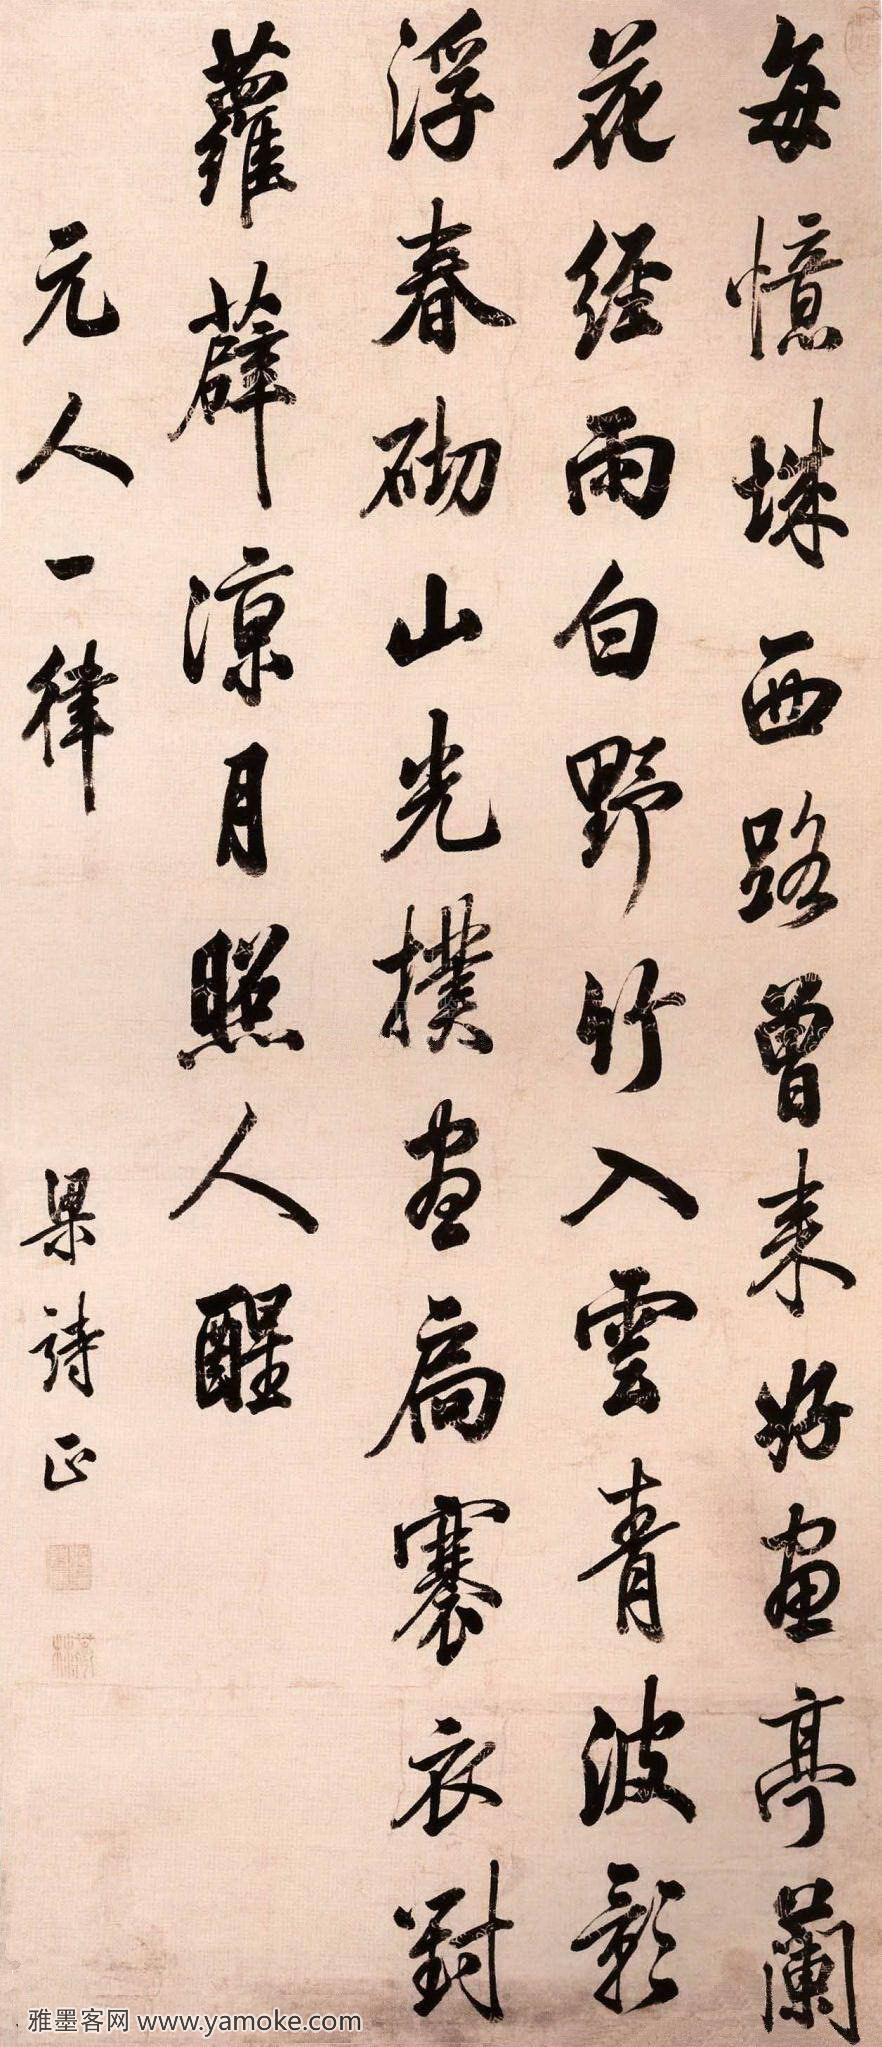 每憶城西路曾来好畫亭蘭
花經雨白野竹入雲青波影
浮春砌山光撲畫扃褰衣對
蘿薜涼月照人醒
元人一律
梁詩正
雅墨客网 www.yamoke.com